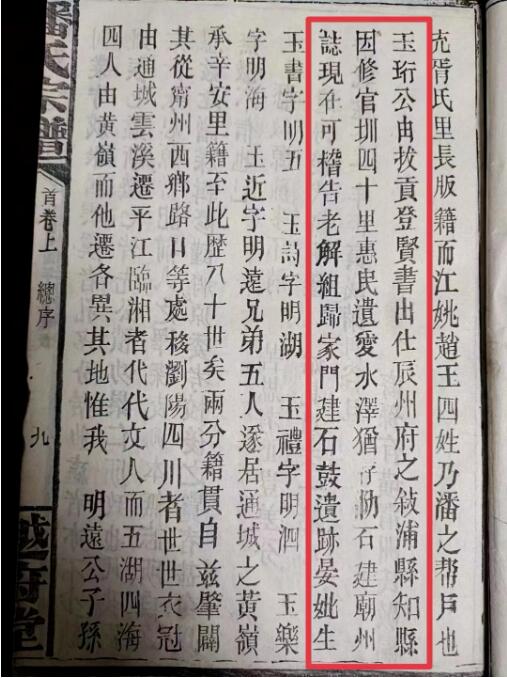 充胥氏里長版籍而江姚趙王四姓乃潘之帮戶也
玉珩公由拔貢登賢書出仕辰州府之敍浦縣知縣
因修官圳四十里惠民遺愛水澤猶存勒石建廟州
誌現在可稽告老解組歸家門建石鼓遺跡晏妣生
玉書字明五 玉詩字明湖 玉禮字明泗 玉樂
字明海 玉近字明遠兄弟五人遂居通城之黃嶺
承辛安里籍至此歷八十世矣兩分籍貫自兹肇闢
其從甯州西鄉路口等處移劉陽四川者世世衣冠
由通城雲溪遷平江臨湘者代代文人而五湖四海
四人由黃嶺而他遷各異其地惟我 明遠公子孫
潘氏宗譜
首卷上 總序
九